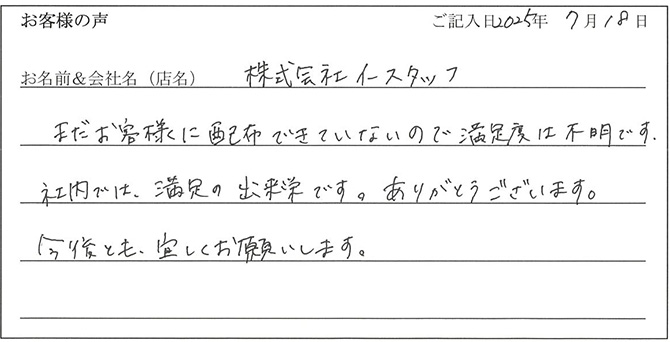 お客様の声 ご記入日2025年 7月18日
お名前&会社名（店名） 株式会社イースタッフ
まだお客様に配布できていないので満足度は不明です.
社内では、満足の出来栄です。ありがとうございます。
今後とも、宜しくお願いします。